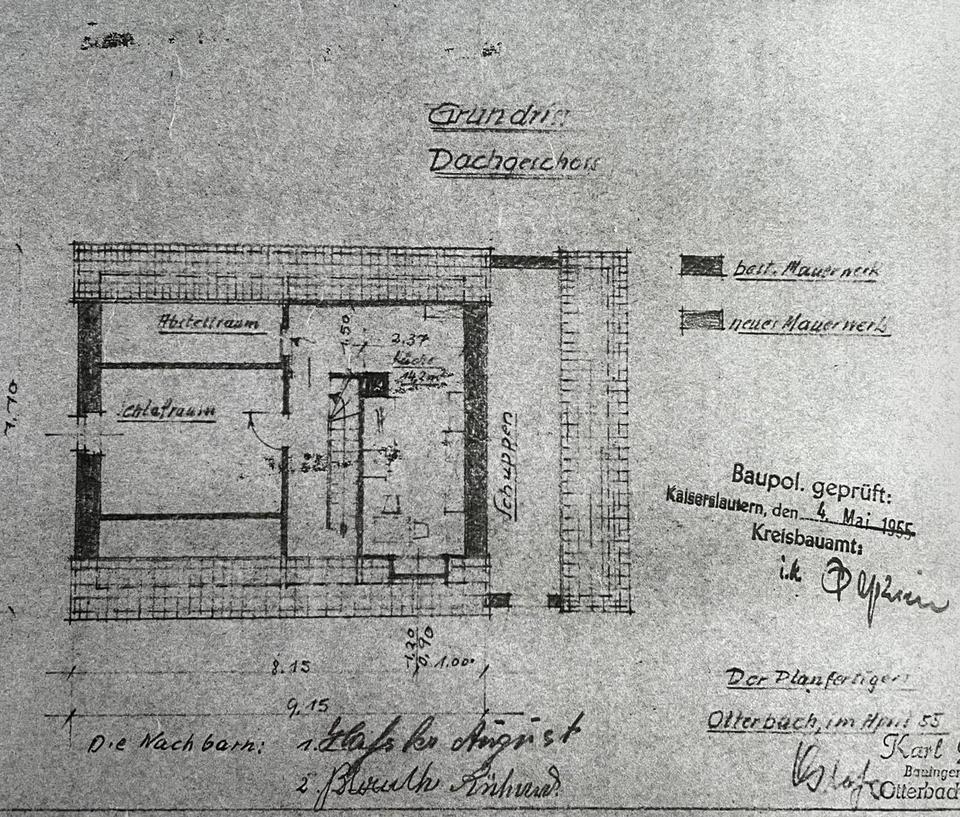 Grundriß
Dachgeschoss
best. Mauerwerk
neues Mauerwerk
Abstellraum
1,50
2,37
Küche
14,2m²
Schlafraum
Schuppen
7,70
Baupol. geprüft:
Kaiserslautern, den 4. Mai 1955
Kreisbauamt:
i.A.
1,20
0,90
1.00
8.15
9,15
Der Planfertiger:
Otterbach, im April 55
Karl
Bauingen
Otterbach
Die Nachbarn: 1. August
2.